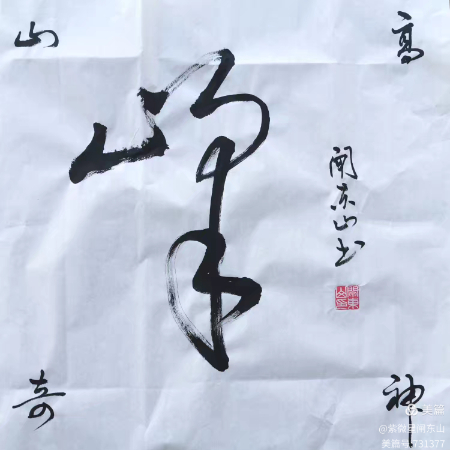 高山
峰
闻东山书
神奇
美篇
@紫微星闻东山
美篇号:731377